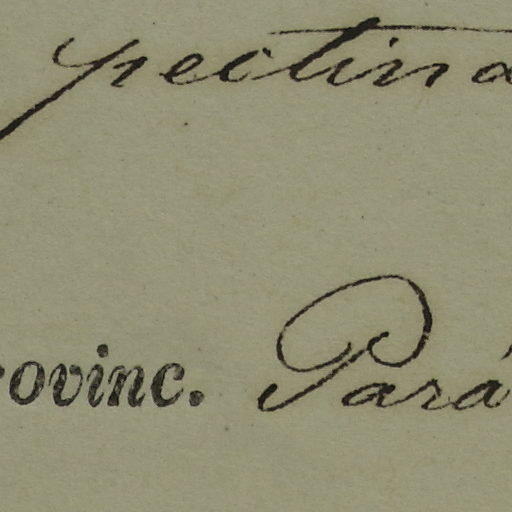 pectina
rovinc. Pará